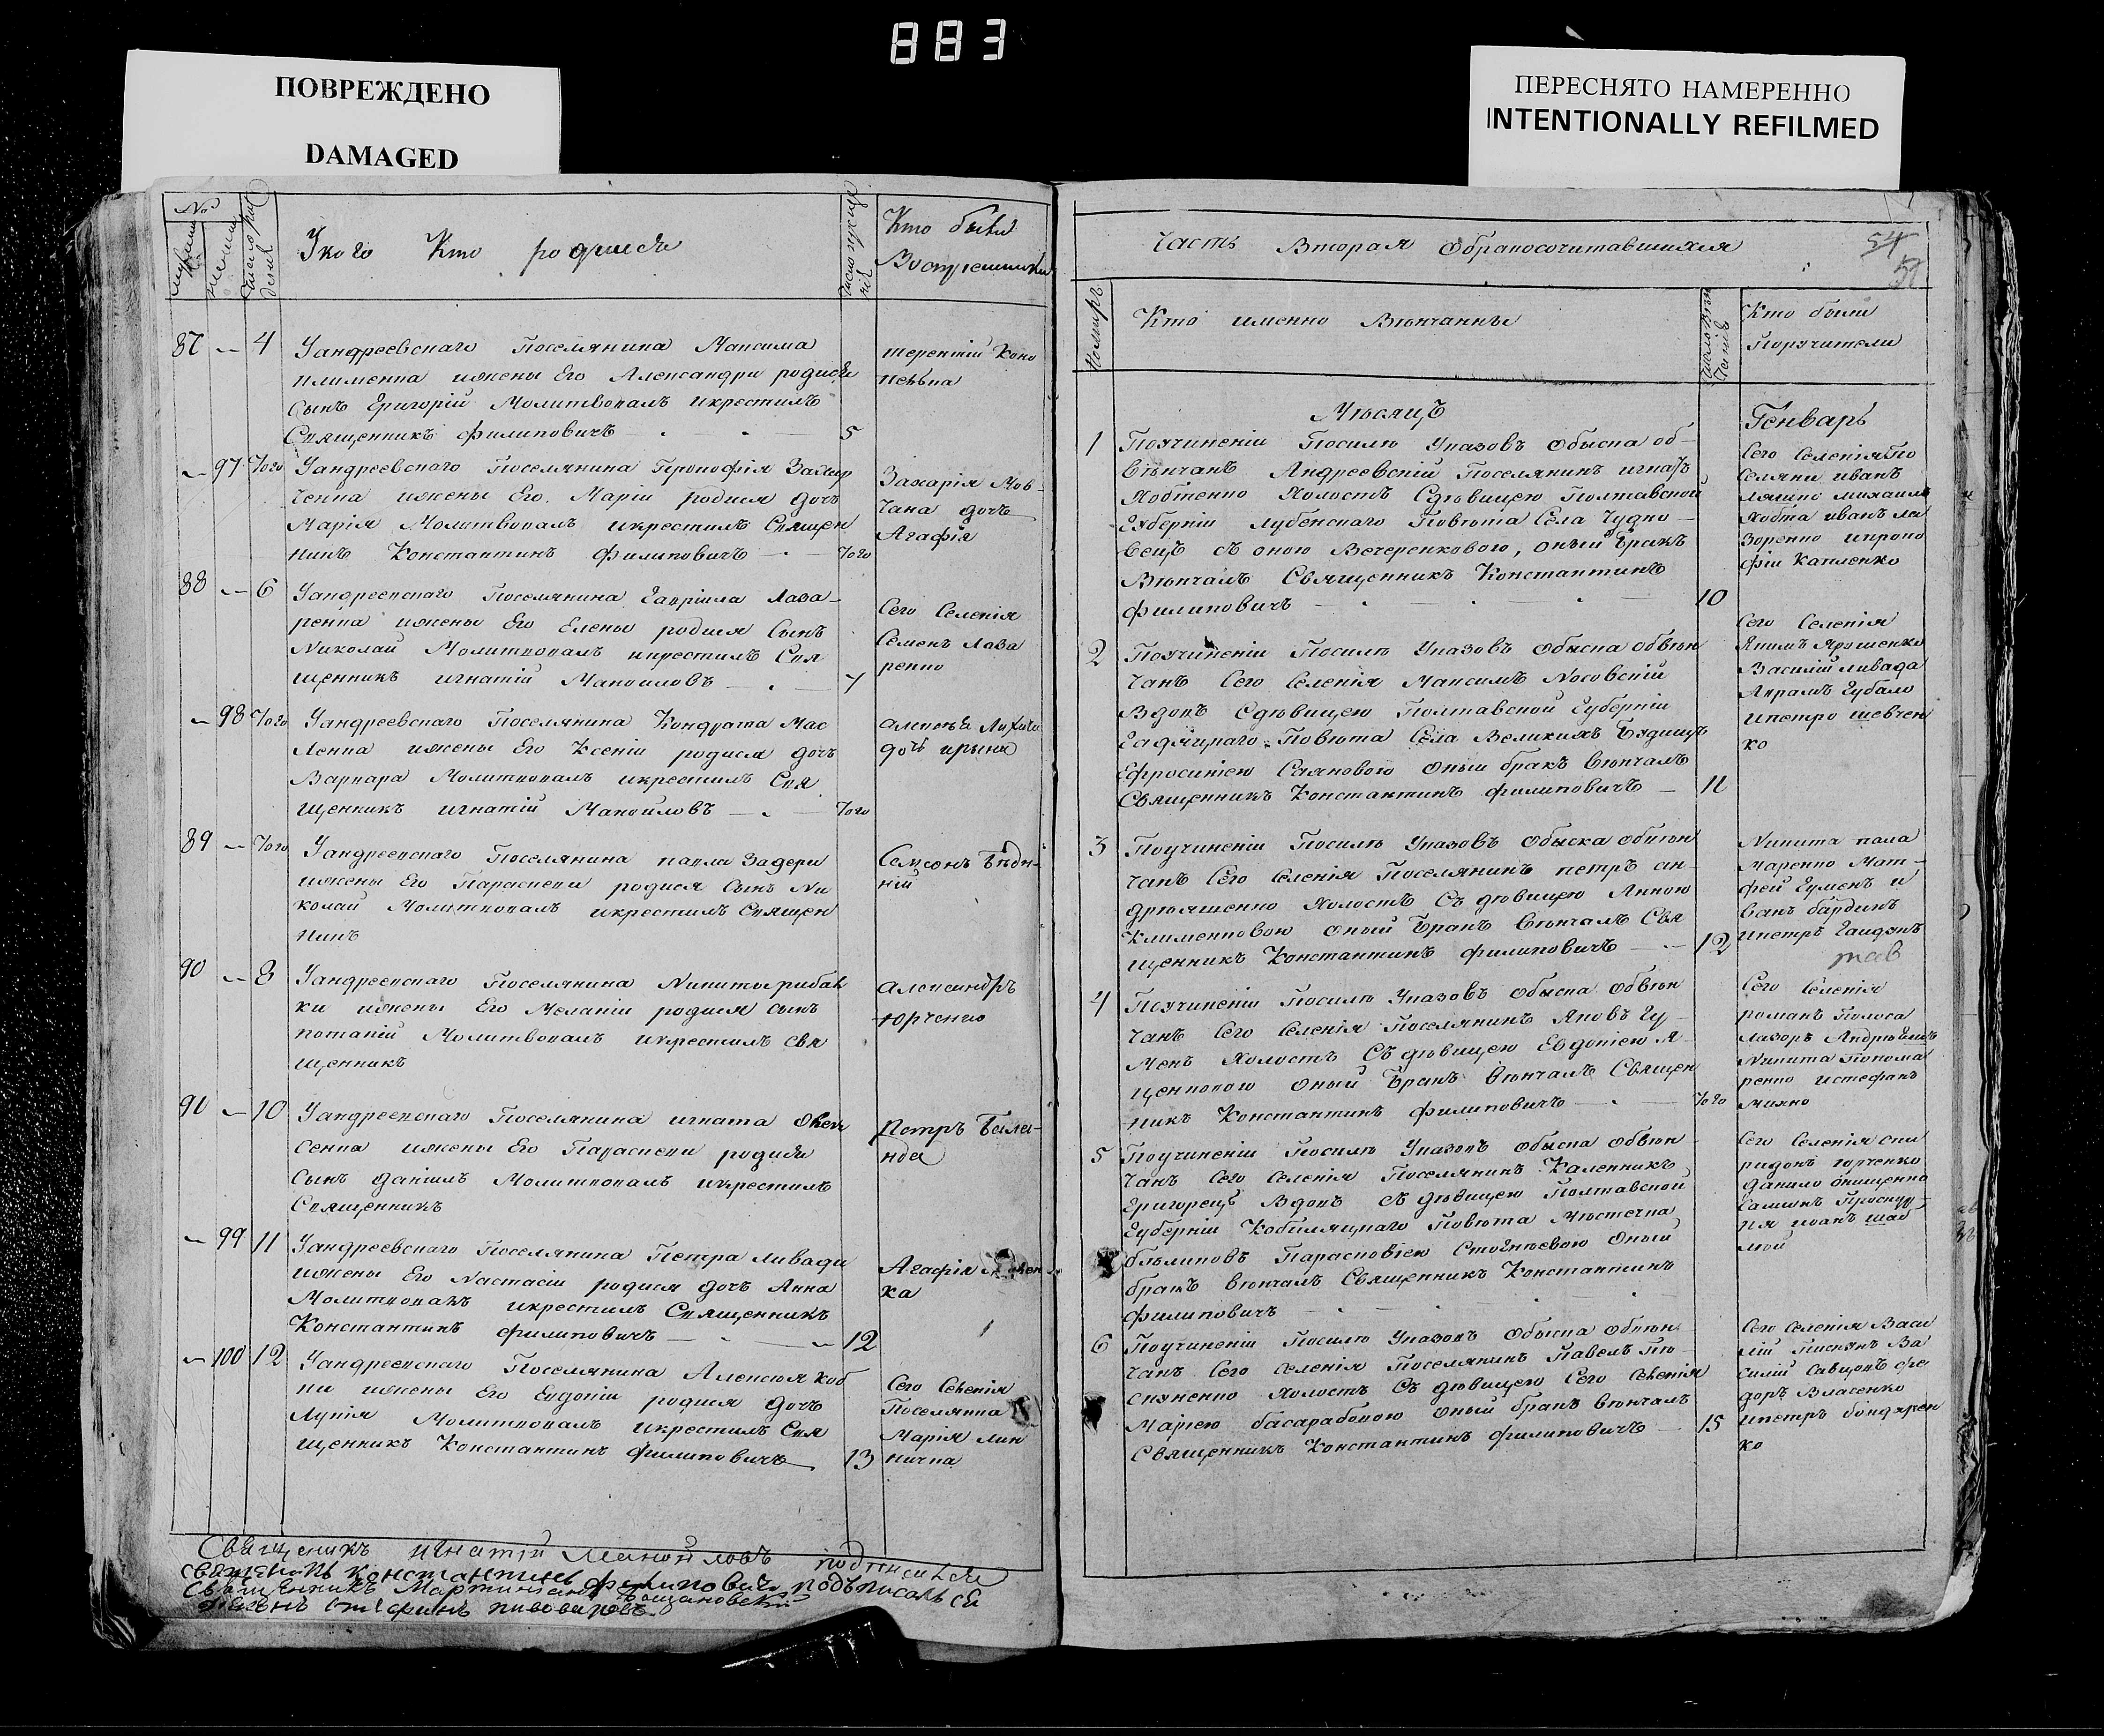 883
ПОВРЕЖДЕНО
DAMAGED
ПЕРЕСНЯТО НАМЕРЕННО
INTENTIONALLY REFILMED
№
Укого Кто родился
Кто были
Воспреемники
87 4 Уандреевскаго Поселянина Максима
клименка ижены Его Александри родился
Сынъ Григорій Молитвовалъ икрестилъ
Священникъ филиповичъ 5
терентій Коно
97 Того Уандреевскаго Поселянина Прокофія
ченка ижены Его Маріи родися дочъ
Марія Молитвовалъ икрестилъ Священ
никъ Константинъ филиповичъ Того
Захарія Мов
чана дочъ
Агафія
88 6 Уандреевскаго Поселянина Гавріила Лаза
ренка ижены Его Елены родися Сынъ
Николай Молитвовалъ икрестилъ Свя
щенникъ игнатій Маноиловъ 7
Сего Селенія
Семенъ Лаза
ренко
98 Того Уандреевскаго Поселянина Кондрата Мас
ленка ижены Его Ксеніи родися дочъ
Варвара Молитвовалъ икрестилъ Свя
щенникъ игнатій Маноиловъ Того
дочъ ирина
89 Того Уандреевскаго Поселянина павла Задери
ижены Его Параскеви родися Сынъ Ни
колай Молитвовалъ икрестилъ Священ
никъ
Самсонъ Бѣдн
ній
90 8 Уандреевскаго Поселянина Никиты рибал
ки ижены Его Меланіи родися сынъ
потапій Молитвовалъ икрестилъ свя
щенникъ
александръ
Юрченко
91 10 Уандреевскаго Поселянина игната Овси
Сенка ижены Его Параскеви родися
Сынъ даніилъ Молитвовалъ икрестилъ
Священникъ
Петръ
99 11 Уандреевскаго Поселянина Петра ливади
ижены Его Настасіи родися дочъ Анна
Молитвовалъ икрестилъ Священникъ
Константинъ филиповичъ 12
Агафія
ка
100 12 Уандреевскаго Поселянина Алексея коб
ки ижены Его Евдокіи родися дочъ
Лукія Молитвовалъ икрестилъ Свя
щенникъ Константинъ филиповичъ 13
Сего Селенія
Поселянка
Марія лин
никна
Священикъ игнатій Маноиловъ подписался
священикъ константинъ филиповичъ подъписалъся
Священникъ Мартинъ
стефанъ пивоваровъ
Часть Вторая Обракосочитавшихся
54
59
Номеръ
Кто именно Вѣнчанны
Кто были
Поручители
Мѣсяцъ Генварь
1 Поучиненіи Посилѣ Указовъ Обыска об
Вѣнчанъ Андреевскій Поселянинъ игнатъ
Хобтенко Холостъ Сдѣвицею Полтавской
Губерніи лубенскаго Повѣта Села Чудно
Вецъ Веклою Вечеренковою, оный Бракъ
Вѣнчалъ Священникъ Константинъ
филиповичъ 10
Сего Селенія По
Селяни иванъ
ляшко михаилъ
Хобта иванъ ла
Зоренко ипроко
фій Капленко
2 Поучиненіи Посилѣ Указовъ Обыска обвѣн
Чанъ Сего Селенія Максимъ Носовскій
Вдовъ Сдѣвицею Полтавской Губерніи
Гадяцкаго Повѣта Села Великихъ Будищъ
Ефросиніею Саяновою Оный бракъ Вѣнчалъ
Священникъ Константинъ филиповичъ 11
Сего Селенія
Якимъ Ярошенко
Василій ливада
Аврамъ Губало
ипетро шевчен
ко
3 Поучиненіи Посилѣ Указовъ Обыска обвѣн
Чанъ Сего Селенія Поселянинъ петръ ан
дрюяшенко Холостъ Съ дѣвицею Анною
Клименковою Оный Бракъ Вѣнчалъ Свя
щенникъ Константинъ филиповичъ 12
Никита пала
маренко Мат
фей Гуменъ и
Ванъ бардикъ
ипетръ
4 Поучиненіи Посилѣ Указовъ Обыска обвѣн
Чанъ Сего Селенія Поселянинъ Яковъ Гу
менъ Холостъ Съ дѣвицею Евдокіею Я
щенковою Оный Бракъ Вѣнчалъ Священ
никъ Константинъ филиповичъ Того
Сего Селенія
романъ Полоса
лазорь
Никита Понома
ренко истефанъ
михно
5 Поучиненіи Посилѣ Указовъ Обыска обвѣн
Чанъ Сего Селенія Поселянинъ Каленникъ
Григорецъ Вдовъ Съ дѣвицею Полтавской
Губерніи Кобиляцкаго Повѣта Мѣстечка
бѣликовъ Парасковіею Стогнѣевою Оный
бракъ Вѣнчалъ Священникъ Константинъ
филиповичъ
Сего Селенія спи
ридонъ горченко
данило онищенко
иванъ
6 Поучиненіи Посилѣ Указовъ Обыска обвѣн
Чанъ Сего Селенія Поселянинъ Павелъ Пю
Холостъ Съ дѣвицею Сего Селенія
Маріею басарабовою Оный бракъ Вѣнчалъ
Священникъ Константинъ филиповичъ 15
Сего Селенія Васи
лій Ва
силій Савцовъ фе
доръ Власенко
ипетръ бондарен
ко